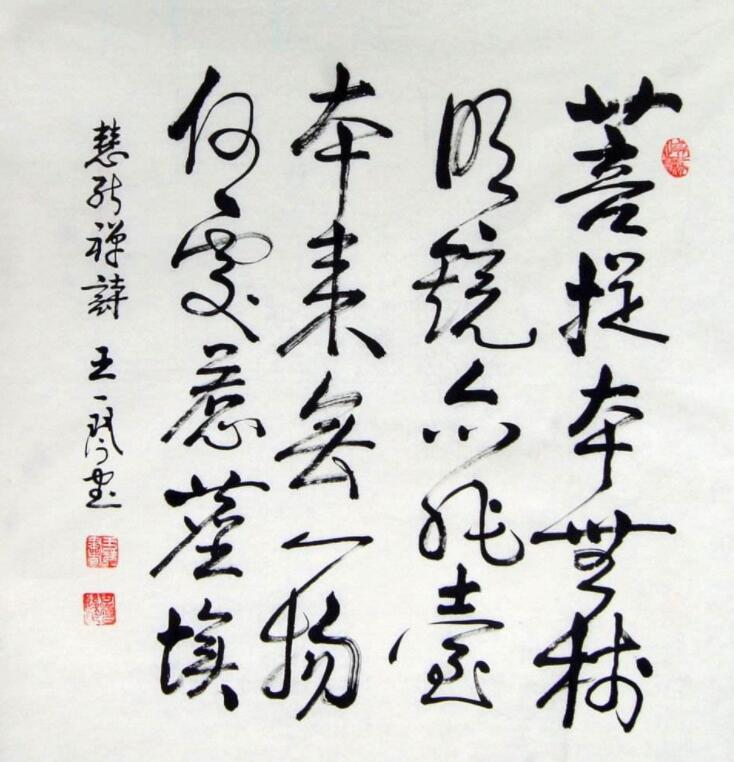 菩提本無樹
明鏡亦非臺
本来無一物
何處惹塵埃
慧能禪詩 王一書